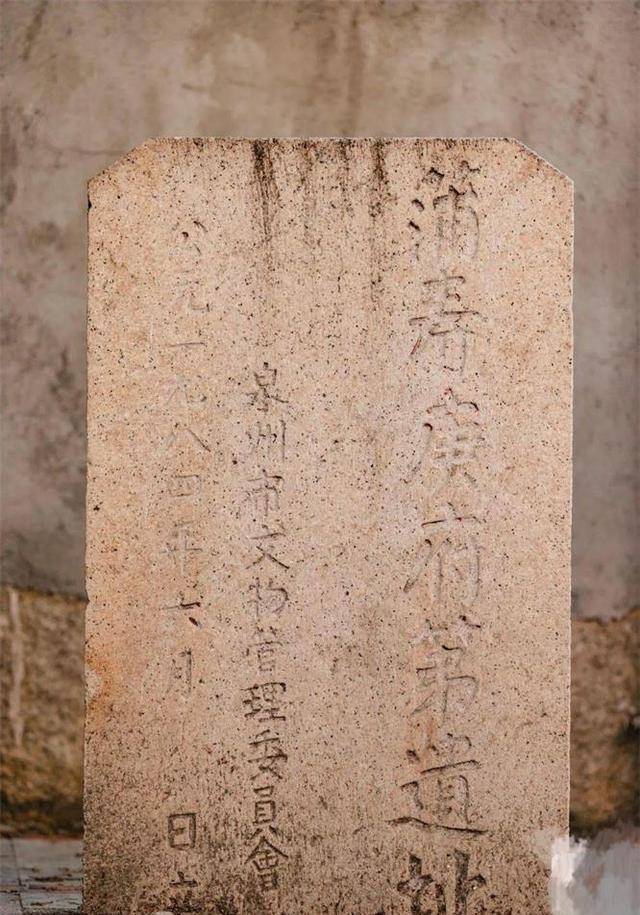 蒲寿庚府第遺址
泉州市文物管理委員會
公元一九八四年六月 日立